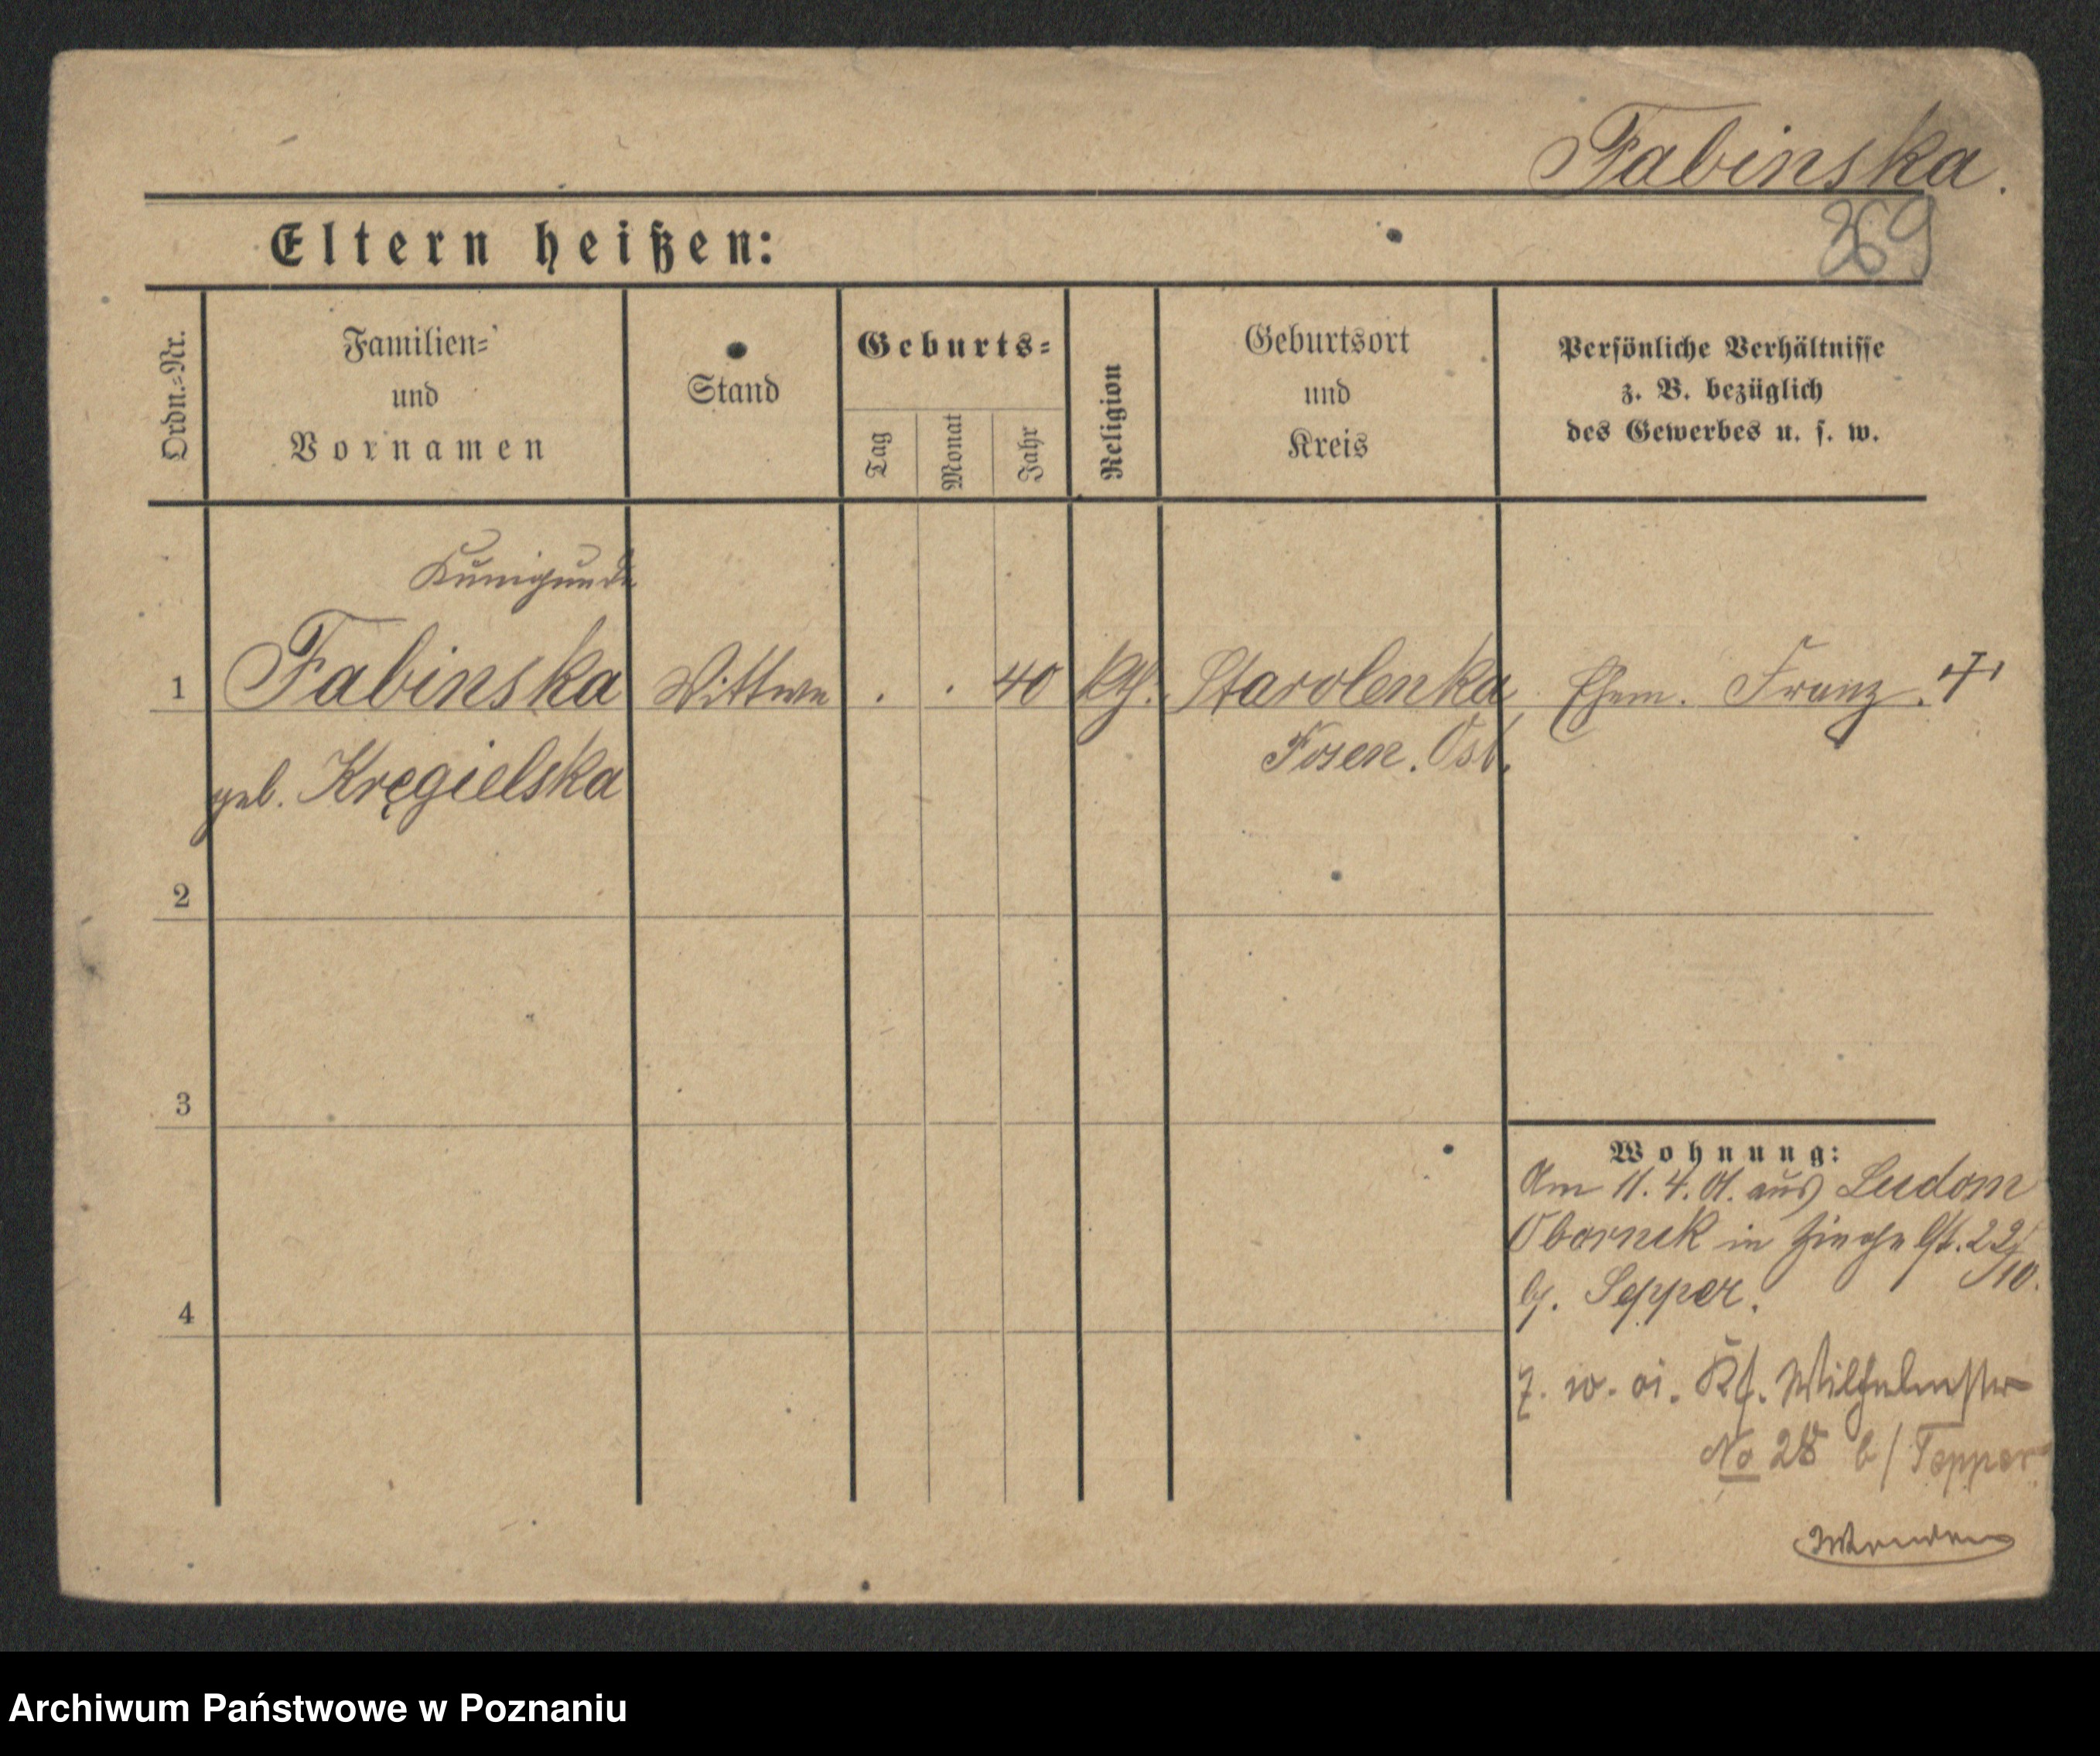 Fabinska.
Eltern heißen:
369
Ordn.-Nr.
Familien-
und
Vornamen
Stand
Geburts-
Tag
Monat
Jahr
Religion
Geburtsort
und
Kreis
Persönliche Verhältnisse
z. B. bezüglich
des Gewerbes u. s. w.
Kunigunde
1 Fabinska Wittwe . . 40 kth. Starolenka Ehem. Franz. †
geb. Kręgielska Posen. Ost.
2
3
4
Wohnung:
Am 11.4.01. aus Ludom
Obornik in 22/10.
b/. Tepper.
z. w. Wilhelmstr
No 28 b/ Tepper
Wenden
Archiwum Państwowe w Poznaniu